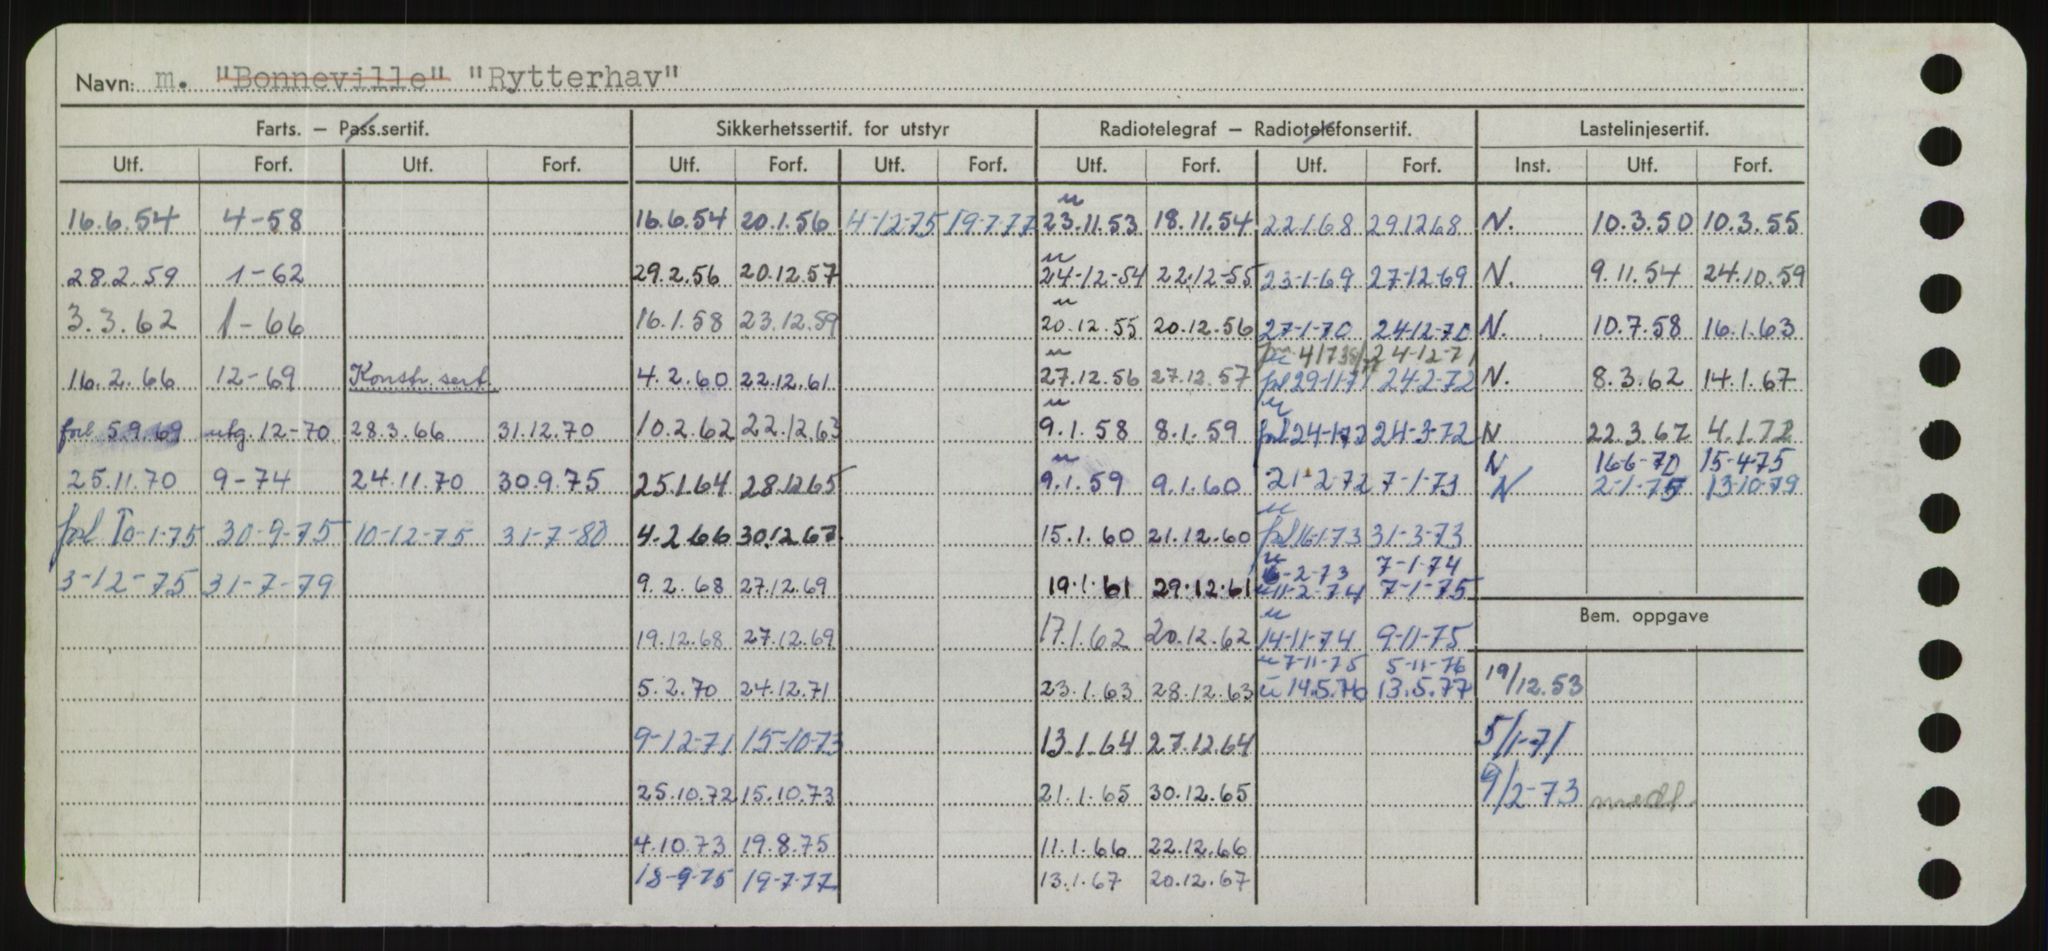 Navn: m. "Bonneville" "Rytterhav"
Farts. – Pass.sertif. Sikkerhetssertif. for utstyr Radiotelegraf – Radiotelefonsertif. Lastelinjesertif.
Utf. Forf. Utf. Forf. Utf. Forf. Utf. Forf. Utf. Forf. Utf. Forf. Inst. Utf. Forf.
u
16.6.54 4-58 16.6.54 20.1.56 4-12-75 19-7-77 23.11.53 18.11.54 22.1.68 29.12.68 N. 10.3.50 10.3.55
u
28.2.59 1-62 29.2.56 20.12.57 24-12-54 22-12-55 23-1-69 27-12-69 N. 9.11.54 24.10.59
u
3.3.62 1-66 16.1.58 23.12.59 20.12.55 20.12.56 27-1-70 24-12-70 N. 10.7.58 16.1.63
u 24-12-71
16.2.66 12-69 Konstr. sert. 4.2.60 22.12.61 27.12.56 27.12.57 forl 29-11-71 24-2-72 N. 8.3.62 14.1.67
u u
forl. 5.9.69 utg. 12-70 28.3.66 31.12.70 10.2.62 22.12.63 9.1.58 8.1.59 forl 24-1-72 24-3-72 N 22.3.67 4.1.72
u N 16-6-70 15-4-75
25.11.70 9-74 24.11.70 30.9.75 25.1.64 28.12.65 9.1.59 9.1.60 21-2-72 7-1-73 N 2-1-75 13-10-79
u
forl 10-1-75 30-9-75 10-12-75 31-7-80 4.2.66 30.12.67 15.1.60 21.12.60 forl 16-1-73 31-3-73
u 6-2-73 7-1-74
3-12-75 31-7-79 9.2.68 27.12.69 19.1.61 29.12.61 u 11-2-74 7-1-75
Bem. oppgave
u
19.12.68 27.12.69 17.1.62 20.12.62 14-11-74 9-11-75
u 7-11-75 5-11-76
5.2.70 24.12.71 23.1.63 28.12.63 u 14.5.76 13.5.77 19/12.53
9-12-71 15-10-73 13.1.64 27.12.64 5/1-71
25.10.72 15.10.73 21.1.65 30.12.65 9/2-73 medl.
4.10.73 19.8.75 11.1.66 22.12.66
18-9-75 19-7-77 13.1.67 20.12.67